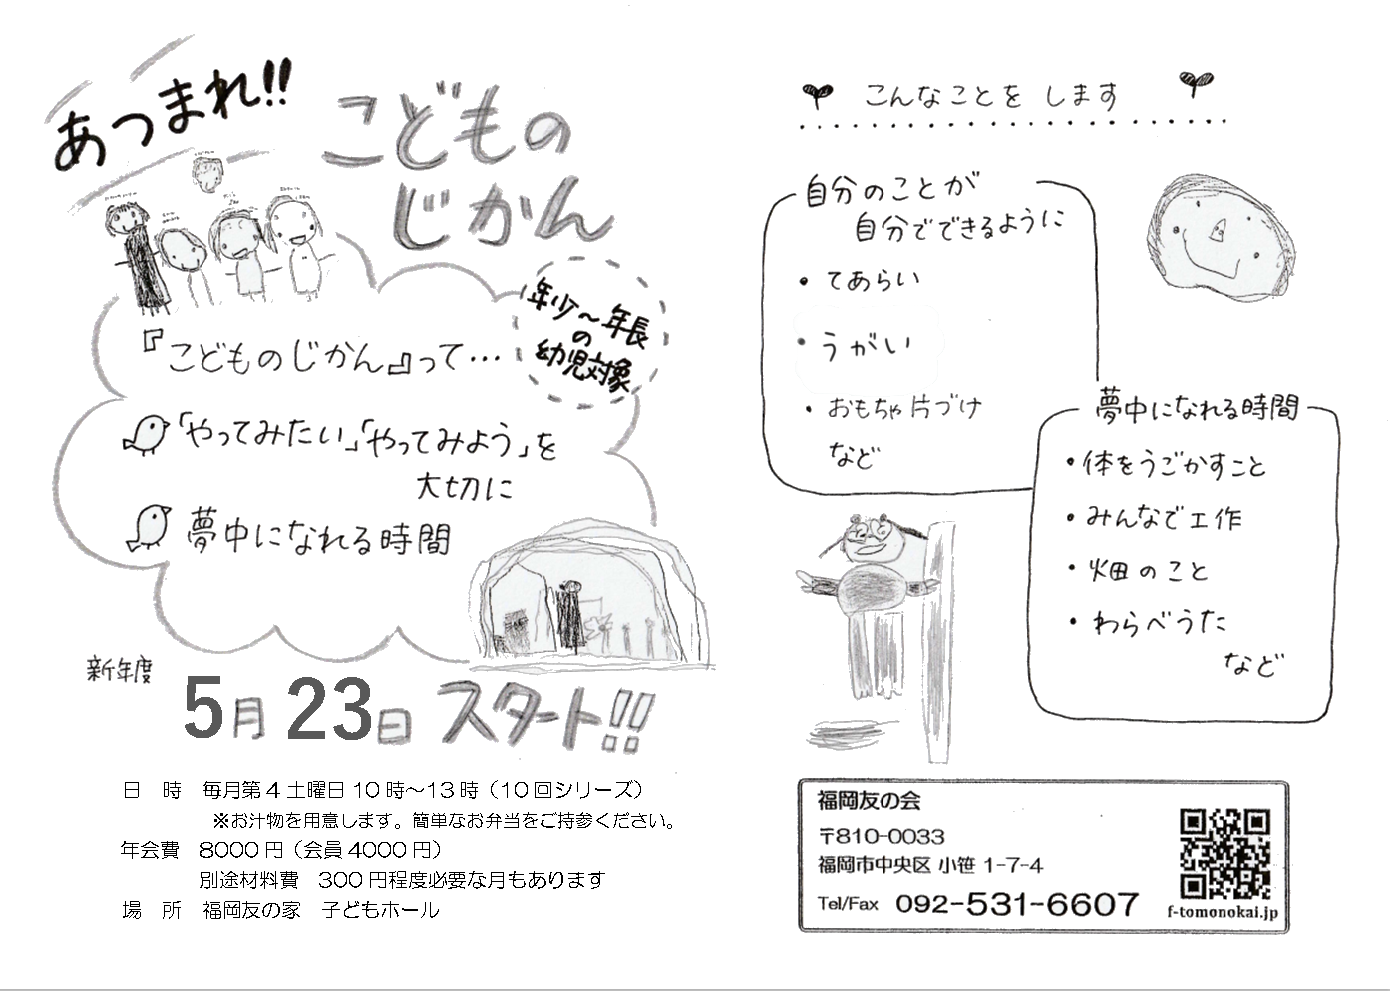 あつまれ!!
こどもの
じかん
年少〜年長
の
幼児対象
『こどものじかん』って…
「やってみたい」「やってみよう」を
大切に
夢中になれる時間
新年度
5月23日スタート!!
日　時　毎月第4土曜日10時〜13時（10回シリーズ）
※お汁物を用意します。簡単なお弁当をご持参ください。
年会費　8000円（会員4000円）
別途材料費　300円程度必要な月もあります
場　所　福岡友の家　子どもホール
こんなことを します
自分のことが
自分でできるように
・てあらい
・うがい
・おもちゃ片づけ
など
夢中になれる時間
・体をうごかすこと
・みんなで工作
・畑のこと
・わらべうた
など
福岡友の会
〒810-0033
福岡市中央区 小笹 1-7-4
Tel/Fax 092-531-6607
f-tomonokai.jp